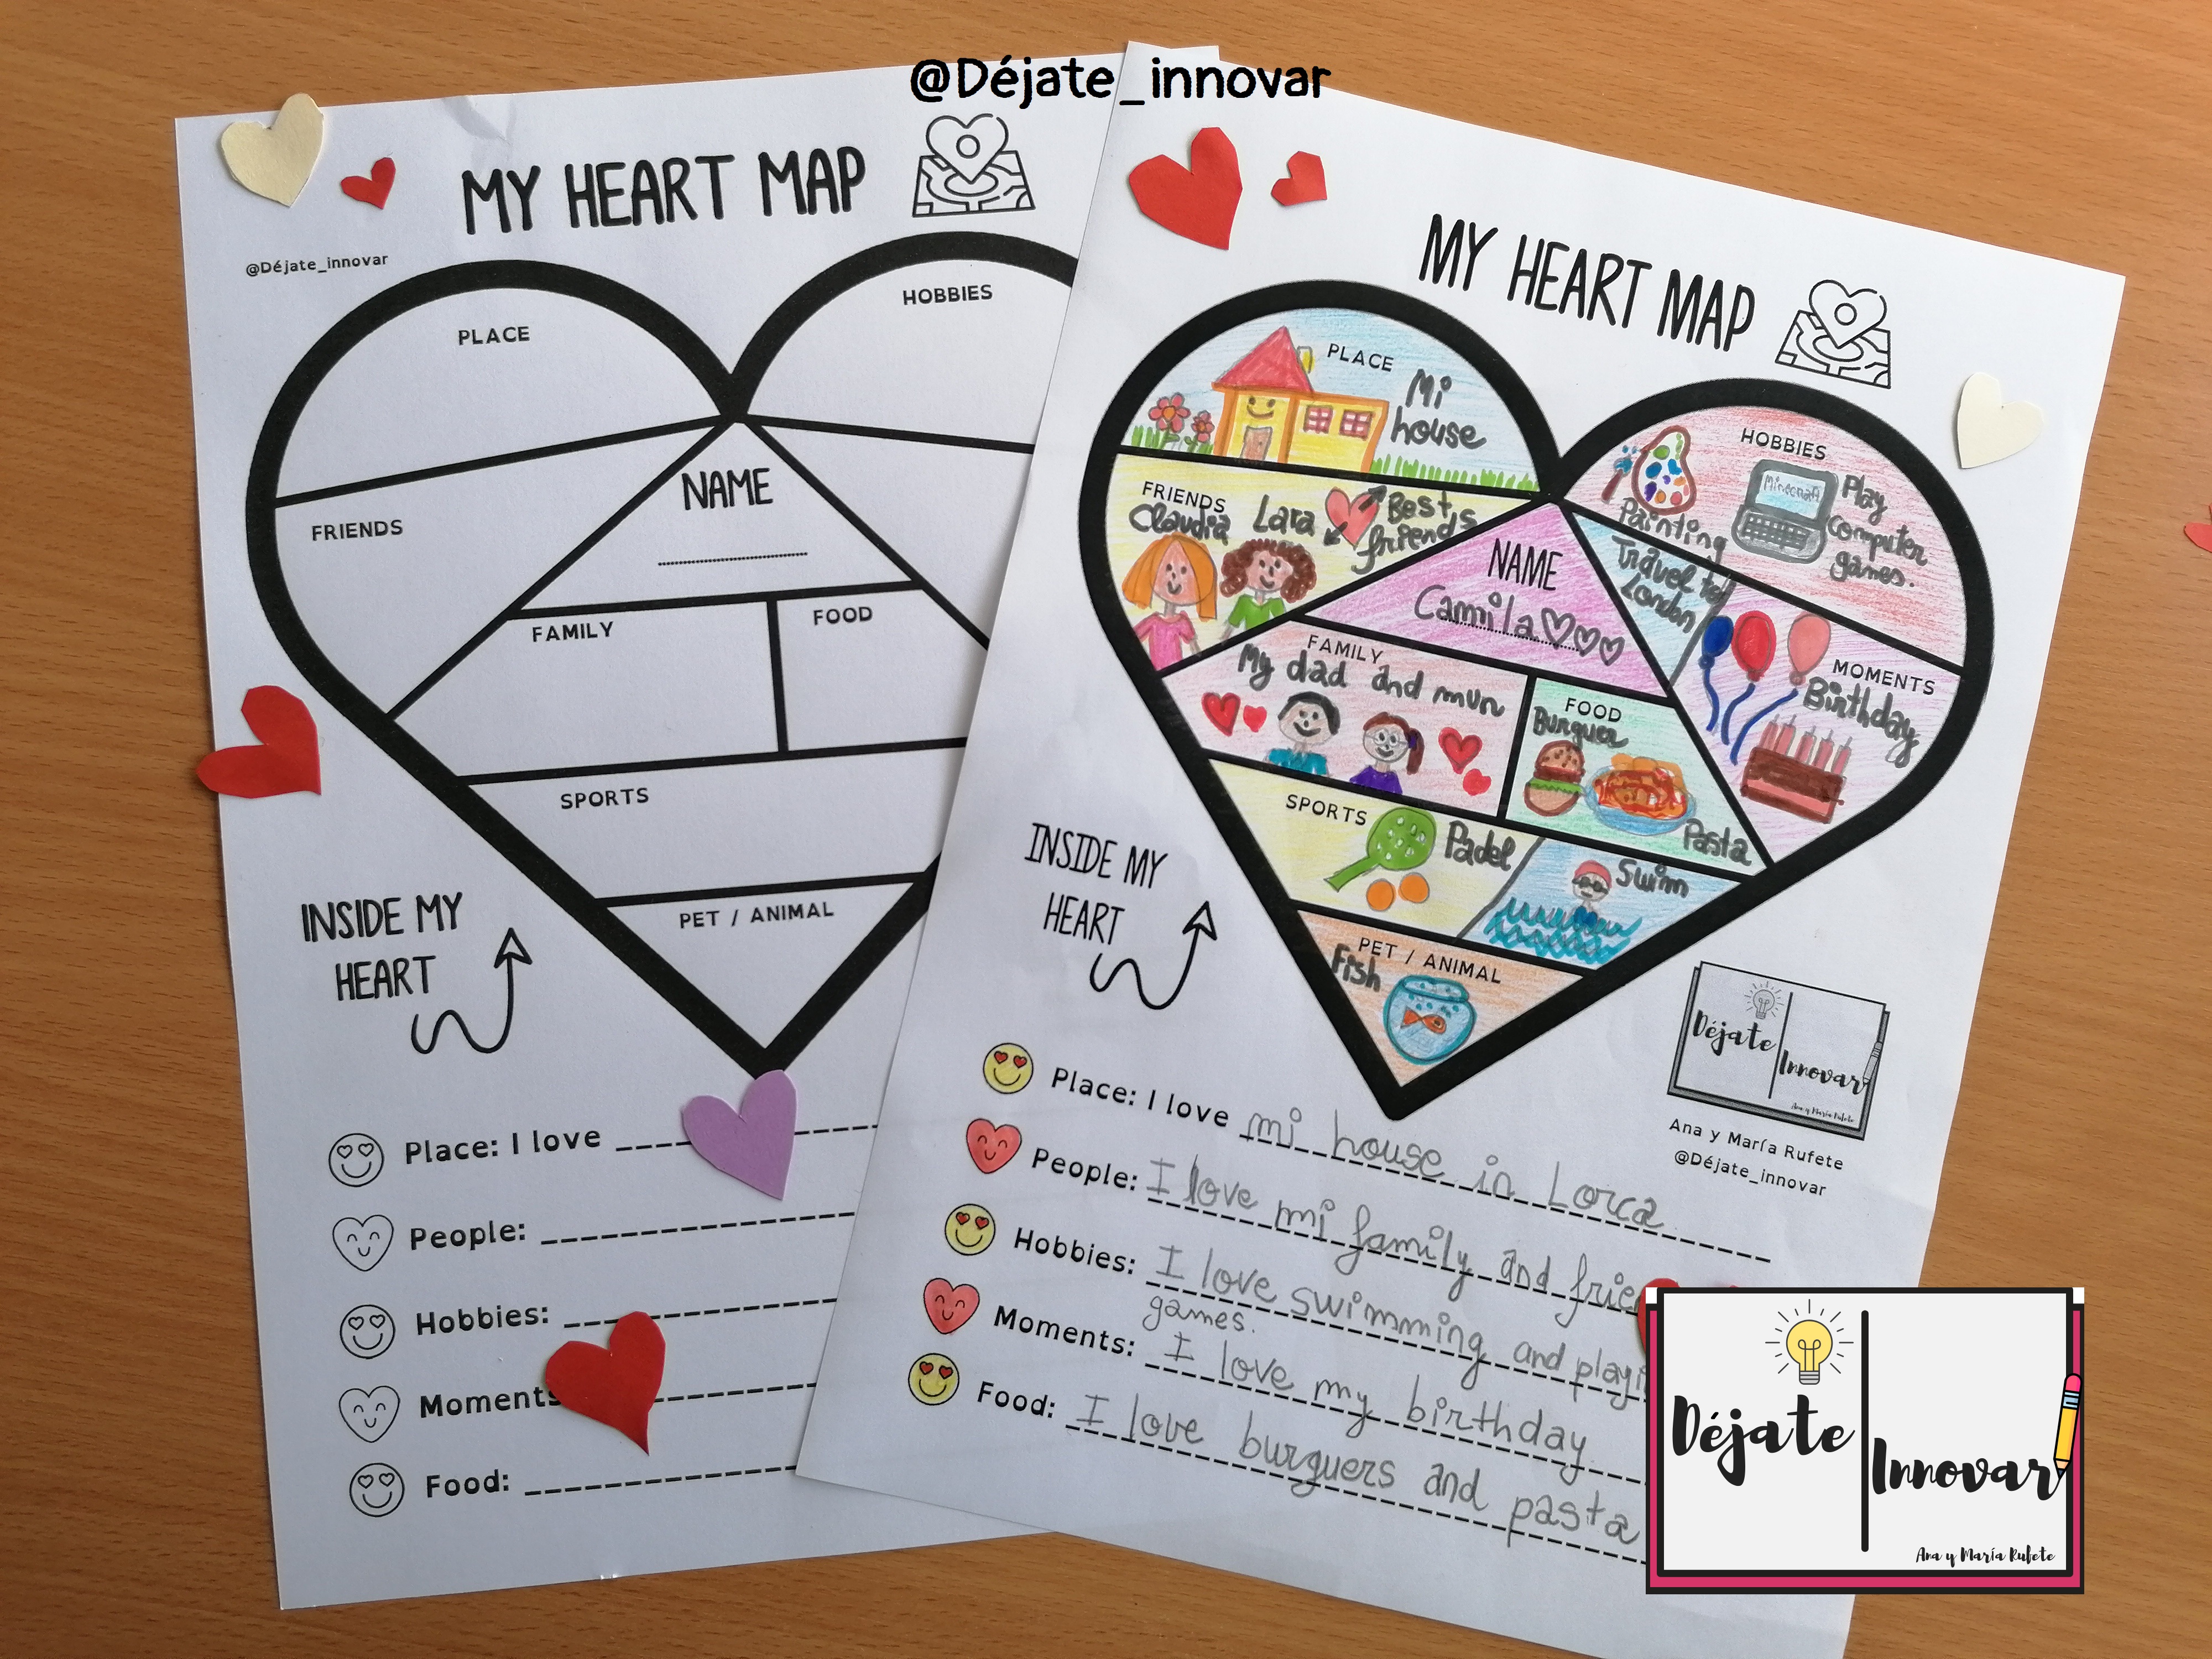 @Déjate_innovar
MY HEART MAP
@Déjate_innovar
PLACE
HOBBIES
FRIENDS
NAME
FAMILY
FOOD
SPORTS
PET / ANIMAL
INSIDE MY
HEART
Place: I love
People:
Hobbies:
Moments
Food:
MY HEART MAP
PLACE
Mi
house
HOBBIES
Painting
Minecraft
Play
computer
games.
FRIENDS
Claudia
Lara
Best
friends
NAME
Camila
Travel to
London
MOMENTS
Birthday
FAMILY
My dad and mun
FOOD
Burguer
Pasta
SPORTS
Padel
Swim
PET / ANIMAL
Fish
INSIDE MY
HEART
Déjate
Innovar
Ana y María Rufete
Ana y María Rufete
@Déjate_innovar
Place: I love mi house in Lorca
People: I love mi family and
Hobbies: I love swimming and
games.
Moments: I love my birthday
Food: I love burguers and pasta
Déjate
Innovar
Ana y María Rufete